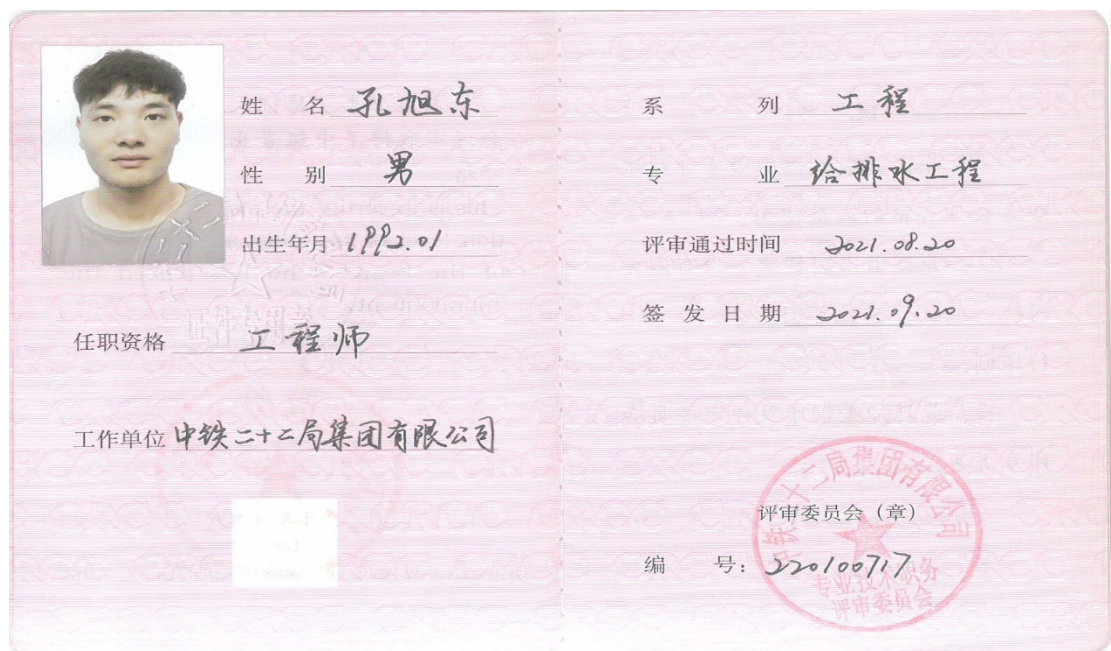 姓名 孔旭东
性别 男
出生年月 1992.01
任职资格 工程师
工作单位 中铁二十二局集团有限公司
系列 工程
专业 给排水工程
评审通过时间 2021.08.20
签发日期 2021.09.20
评审委员会(章)
编号:220100717
中铁二十二局集团有限公司
专业技术职务
评审委员会